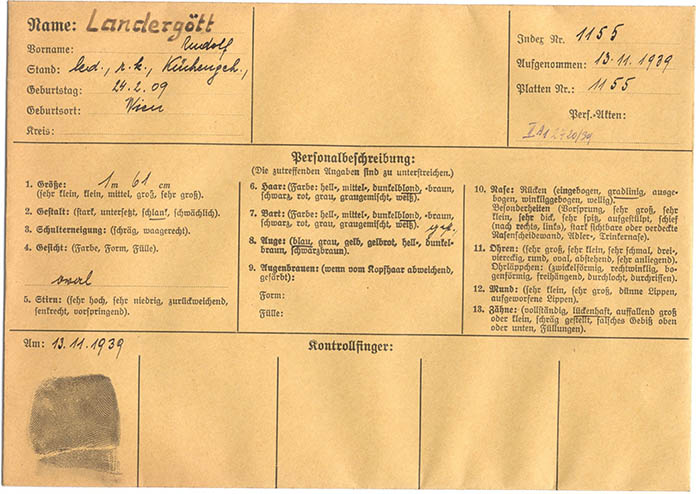 Name: Landergött
Vorname: Rudolf
Stand: led., r.k., Küchengeh.,
Geburtstag: 24.2.09
Geburtsort: Wien
Kreis:
Index Nr. 1155
Aufgenommen: 13.11.1939
Platten Nr.: 1155
Pers.-Akten:
Personalbeschreibung:
(Die zutreffenden Angaben sind zu unterstreichen.)
1. Größe: 1 m 61 cm
(sehr klein, klein, mittel, groß, sehr groß).
2. Gestalt: (stark, untersetzt, schlank, schwächlich).
3. Schulterneigung: (schräg, waagerecht).
4. Gesicht: (Farbe, Form, Fülle).
oval
5. Stirn: (sehr hoch, sehr niedrig, zurückweichend,
senkrecht, vorspringend).
6. Haar: (Farbe: hell-, mittel-, dunkelblond, -braun,
schwarz, rot, grau, graugemischt, weiß).
7. Bart: (Farbe: hell-, mittel-, dunkelblond, -braun,
schwarz, rot, grau, graugemischt, weiß).
8. Auge: (blau, grau, gelb, gelbrot, hell-, dunkel-
braun, schwarzbraun).
9. Augenbrauen: (wenn vom Kopfhaar abweichend,
gefärbt):
Form:
Fülle:
10. Nase: Rücken (eingebogen, gradlinig, ausge-
bogen, winkliggebogen, wellig).
Besonderheiten (Vorsprung, sehr groß, sehr
klein, sehr dick, sehr spitz, aufgestülpt, schief
(nach rechts, links), stark sichtbare oder verdeckte
Nasenscheidewand, Adler-, Trinkernase).
11. Ohren: (sehr groß, sehr klein, sehr schmal, drei-,
viereckig, rund, oval, abstehend, sehr anliegend).
Ohrläppchen: (zwickelförmig, rechtwinklig, bo-
genförmig, freihängend, durchlocht, durchrissen).
12. Mund: (sehr klein, sehr groß, dünne Lippen,
aufgeworfene Lippen).
13. Zähne: (vollständig, lückenhaft, auffallend groß
oder klein, schräg gestellt, falsches Gebiß oben
oder unten, Füllungen).
Am: 13.11.1939
Kontrollfinger: